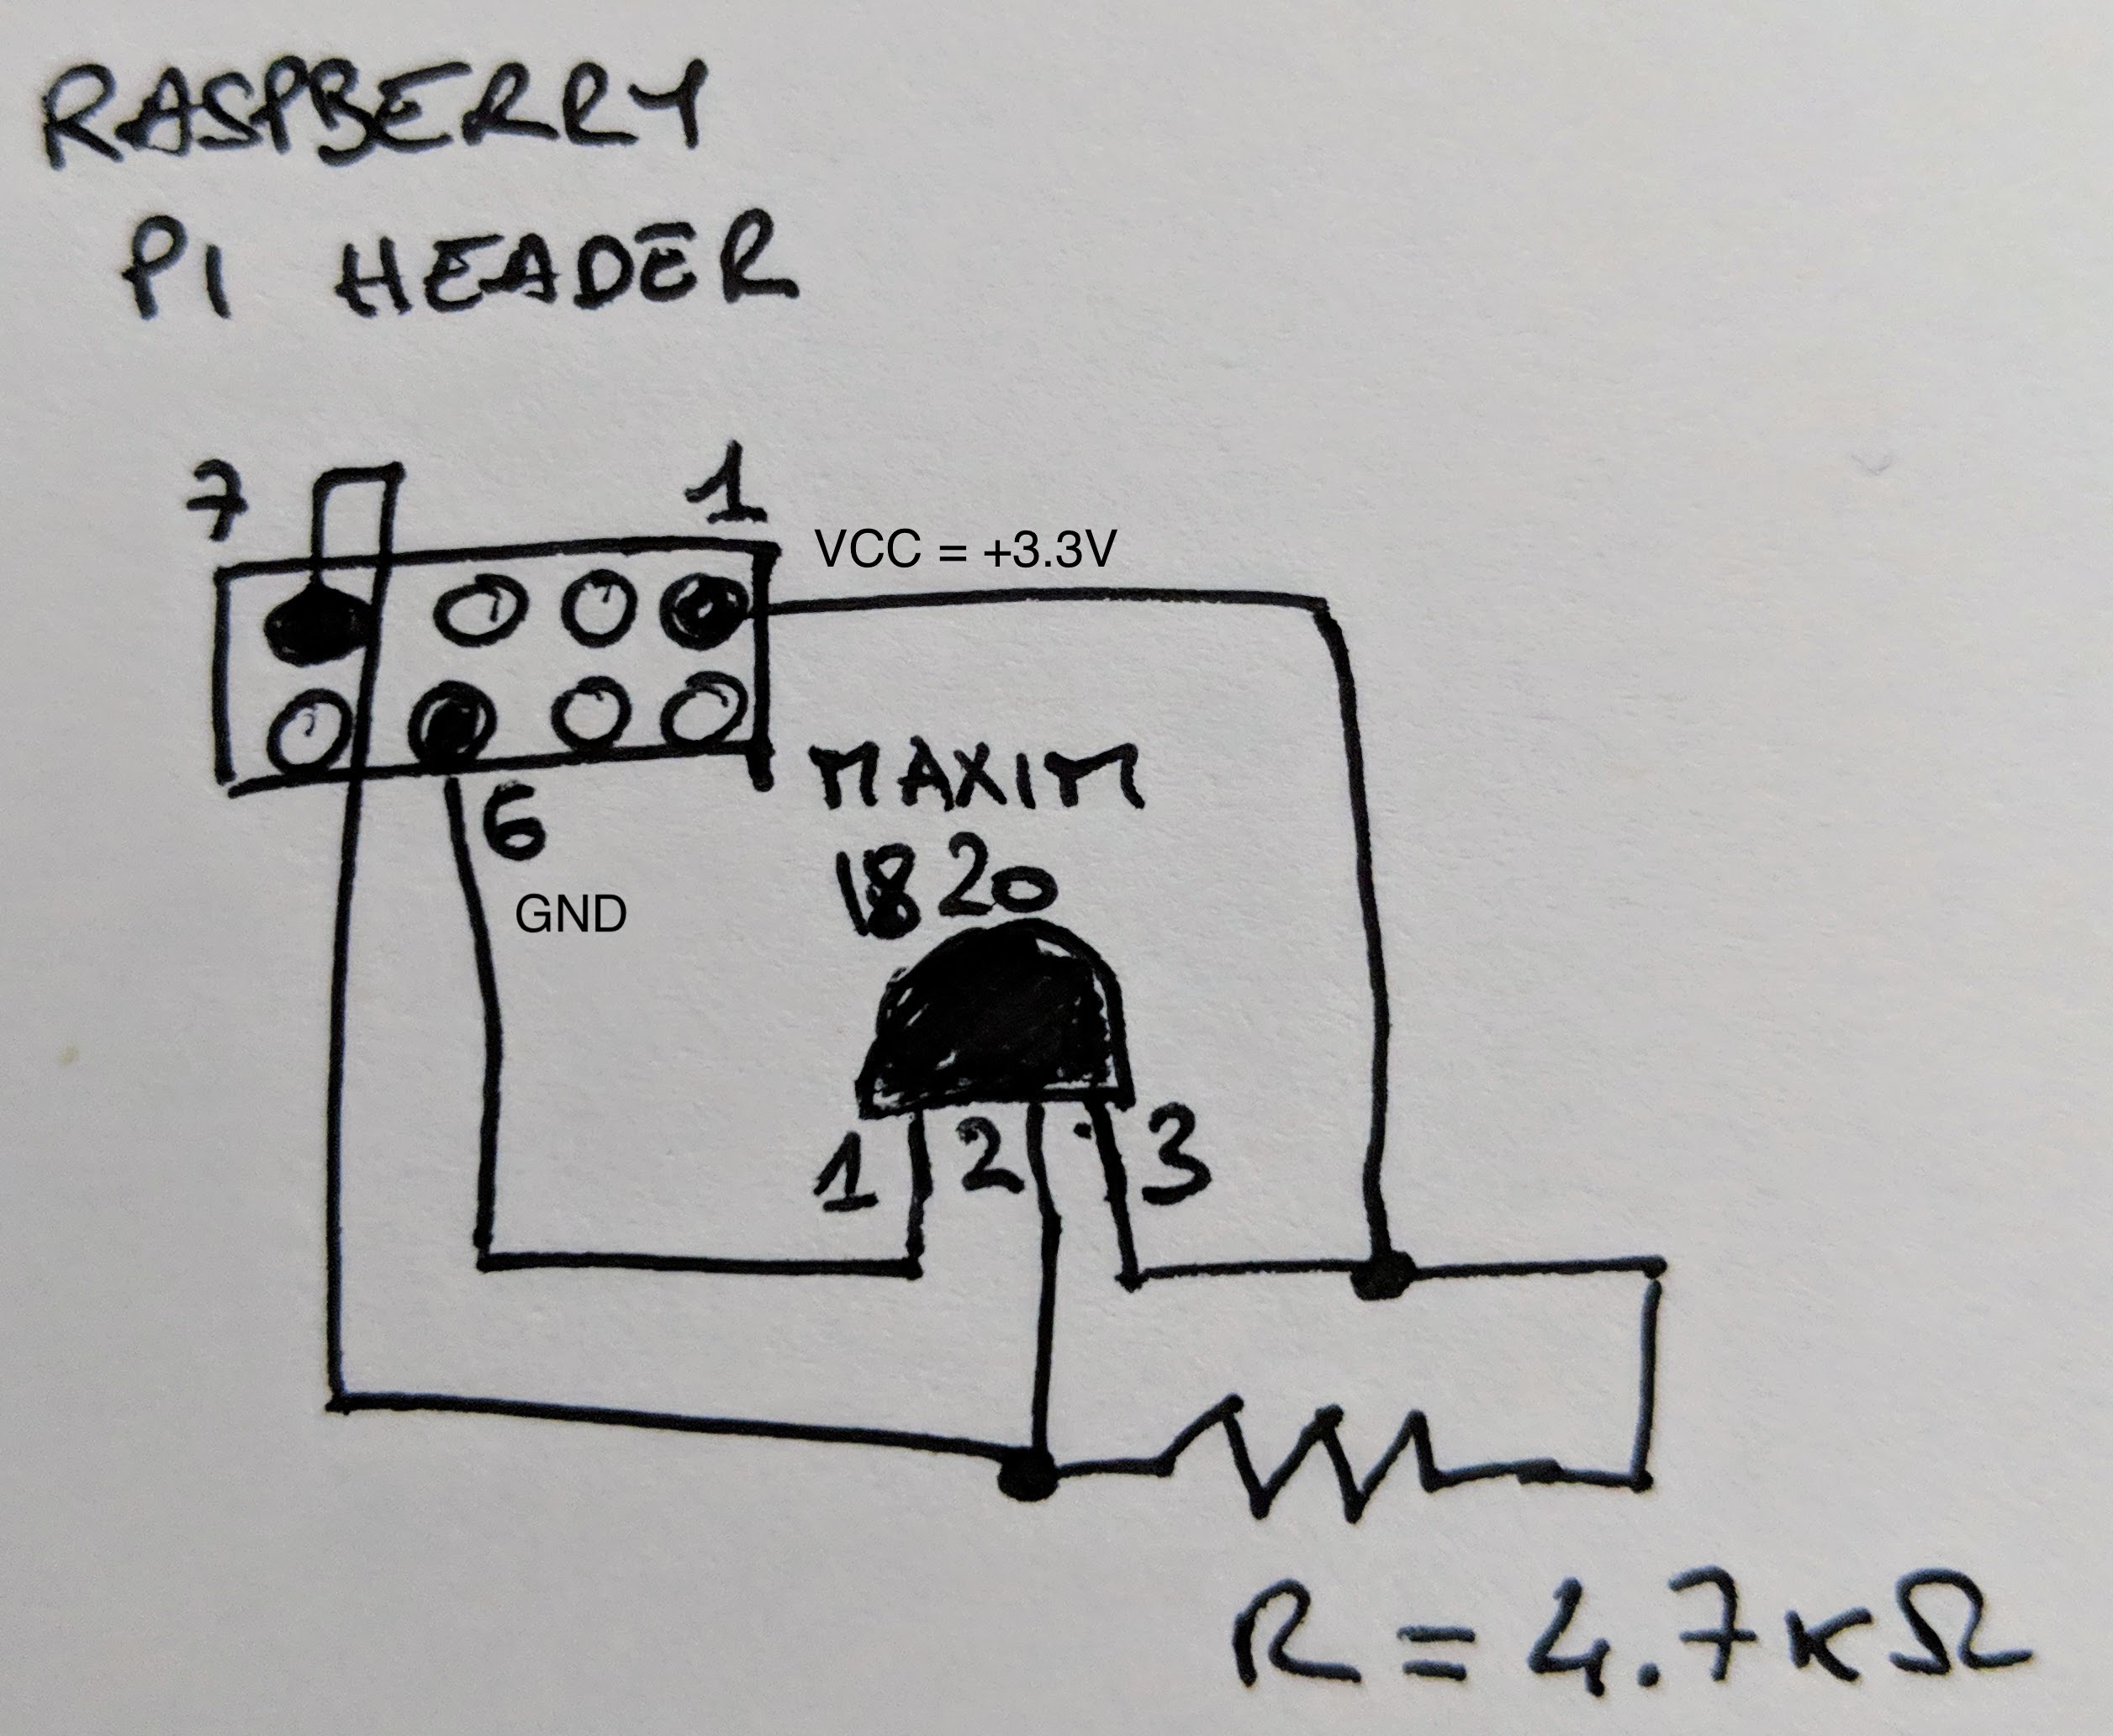 RASPBERRY
PI HEADER
7 1
VCC = +3.3V
6
GND
MAXIM
1820
1 2 3
R = 4.7KΩ